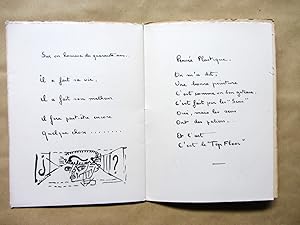 Sur un homme de quarante ans..
il a fait sa vie,
il a fait son malheur
il fera peut-être encore
Quelque chose ........
¿
!?
Pensée Plastique.
On m'a dit,
Une bonne peinture
C'est comme un bon gâteau,
C'est fait par les "Sens"
Oui, mais les sens
Ont des paliers.
Et c'est
C'est le "Top Floor"